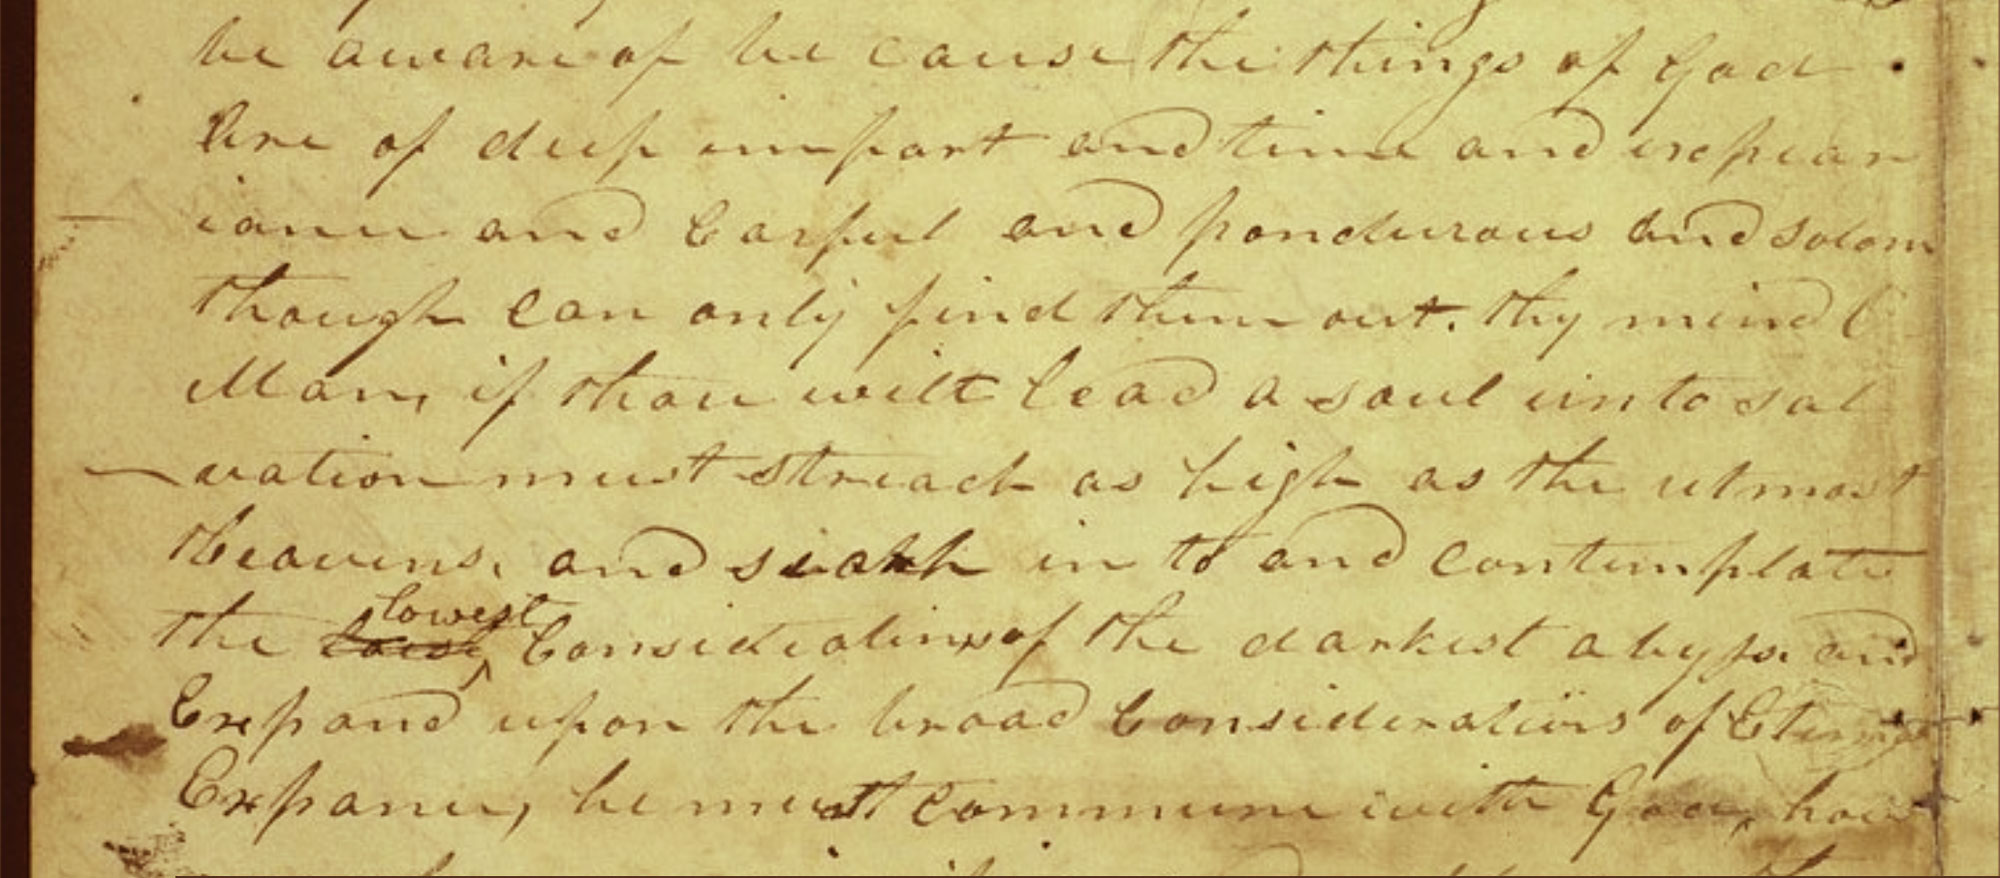 be aware of be cause the things of God
are of deep import and time and expear
iance and Carful and pondurous and solom
though can only find them out. thy mind O
Man, if thou wilt lead a soul unto sal
vation must streach as high as the utmost
Heavens, and search in to and contemplate
the lowest Considerations of the darkest abyss, and
Expand upon the broad Considerations of Eternal
Expance, he must commune with God, how